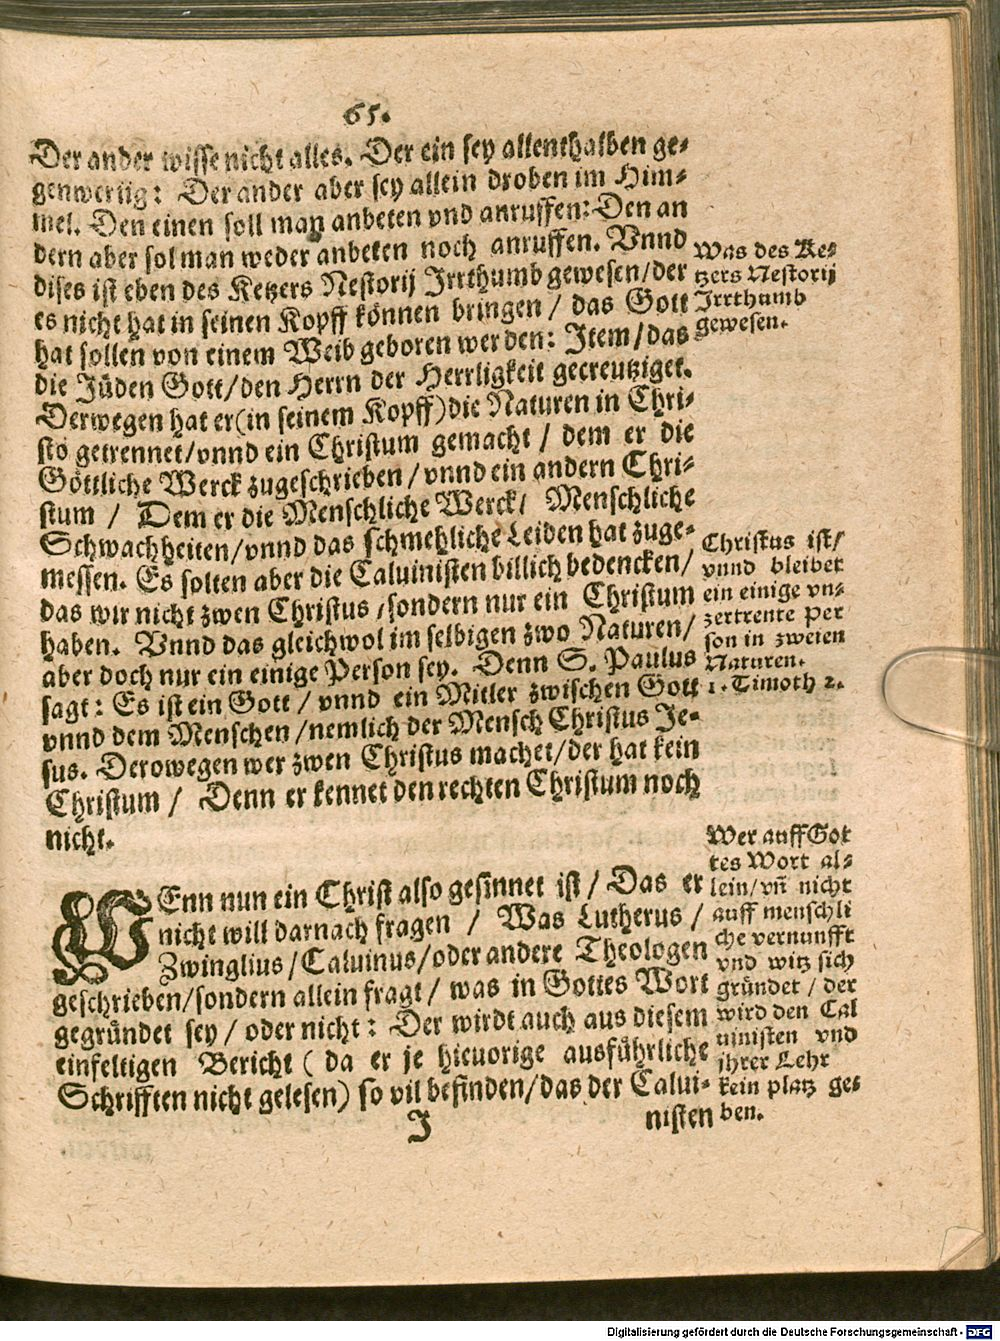 65.
Der ander wisse nicht alles. Der ein sey allenthalben ge-
genwertig: Der ander aber sey allein droben im Him-
mel. Den einen soll man anbeten vnd anruffen: Den an
dern aber sol man weder anbeten noch anruffen. Vnnd
dises ist eben des Ketzers Nestorij Irrthumb gewesen/der
es nicht hat in seinen Kopff können bringen / das Gott
hat sollen von einem Weib geboren werden: Item/das
die Jüden Gott/den Herrn der Herrligkeit gecreutziget.
Derwegen hat er(in seinem Kopff)die Naturen in Chri-
sto getrennet/vnnd ein Christum gemacht / dem er die
Göttliche Werck zugeschrieben/vnnd ein andern Chri-
stum / Dem er die Menschliche Werck/ Menschliche
Schwachheiten/vnnd das schmehliche Leiden hat zuge-
messen. Es solten aber die Caluinisten billich bedencken/
das wir nicht zwen Christus/sondern nur ein Christum
haben. Vnnd das gleichwol im selbigen zwo Naturen/
aber doch nur ein einige Person sey. Denn S. Paulus
sagt: Es ist ein Gott / vnnd ein Mitler zwischen Gott
vnnd dem Menschen/nemlich der Mensch Christus Je-
sus. Derowegen wer zwen Christus machet/der hat kein
Christum / Denn er kennet den rechten Christum noch
nicht.
Was des Ke-
tzers Nestorij
Irrthumb
gewesen.
Christus ist/
vnnd bleibet
ein einige vn-
zertrente Per
son in zweien
Naturen.
1. Timoth 2.
WEnn nun ein Christ also gesinnet ist / Das er
nicht will darnach fragen / Was Lutherus /
Zwinglius/Caluinus/oder andere Theologen
geschrieben/sondern allein fragt/ was in Gottes Wort
gegründet sey / oder nicht: Der wirdt auch aus diesem
einfeltigen Bericht ( da er je hieuorige ausführliche
Schrifften nicht gelesen) so vil befinden/das der Calui-
Wer auff Got
tes Wort al-
lein/vñ nicht
auff menschli
che vernunfft
vnd witz sich
gründet / der
wird den Cal
uinisten vnd
jhrer Lehr
kein platz ge-
ben.
J
nisten
Digitalisierung gefördert durch die Deutsche Forschungsgemeinschaft - DFG